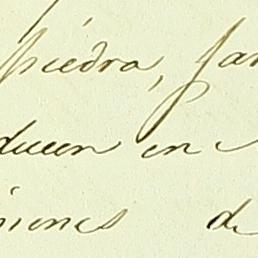 piedra, 
ducen en
niones de